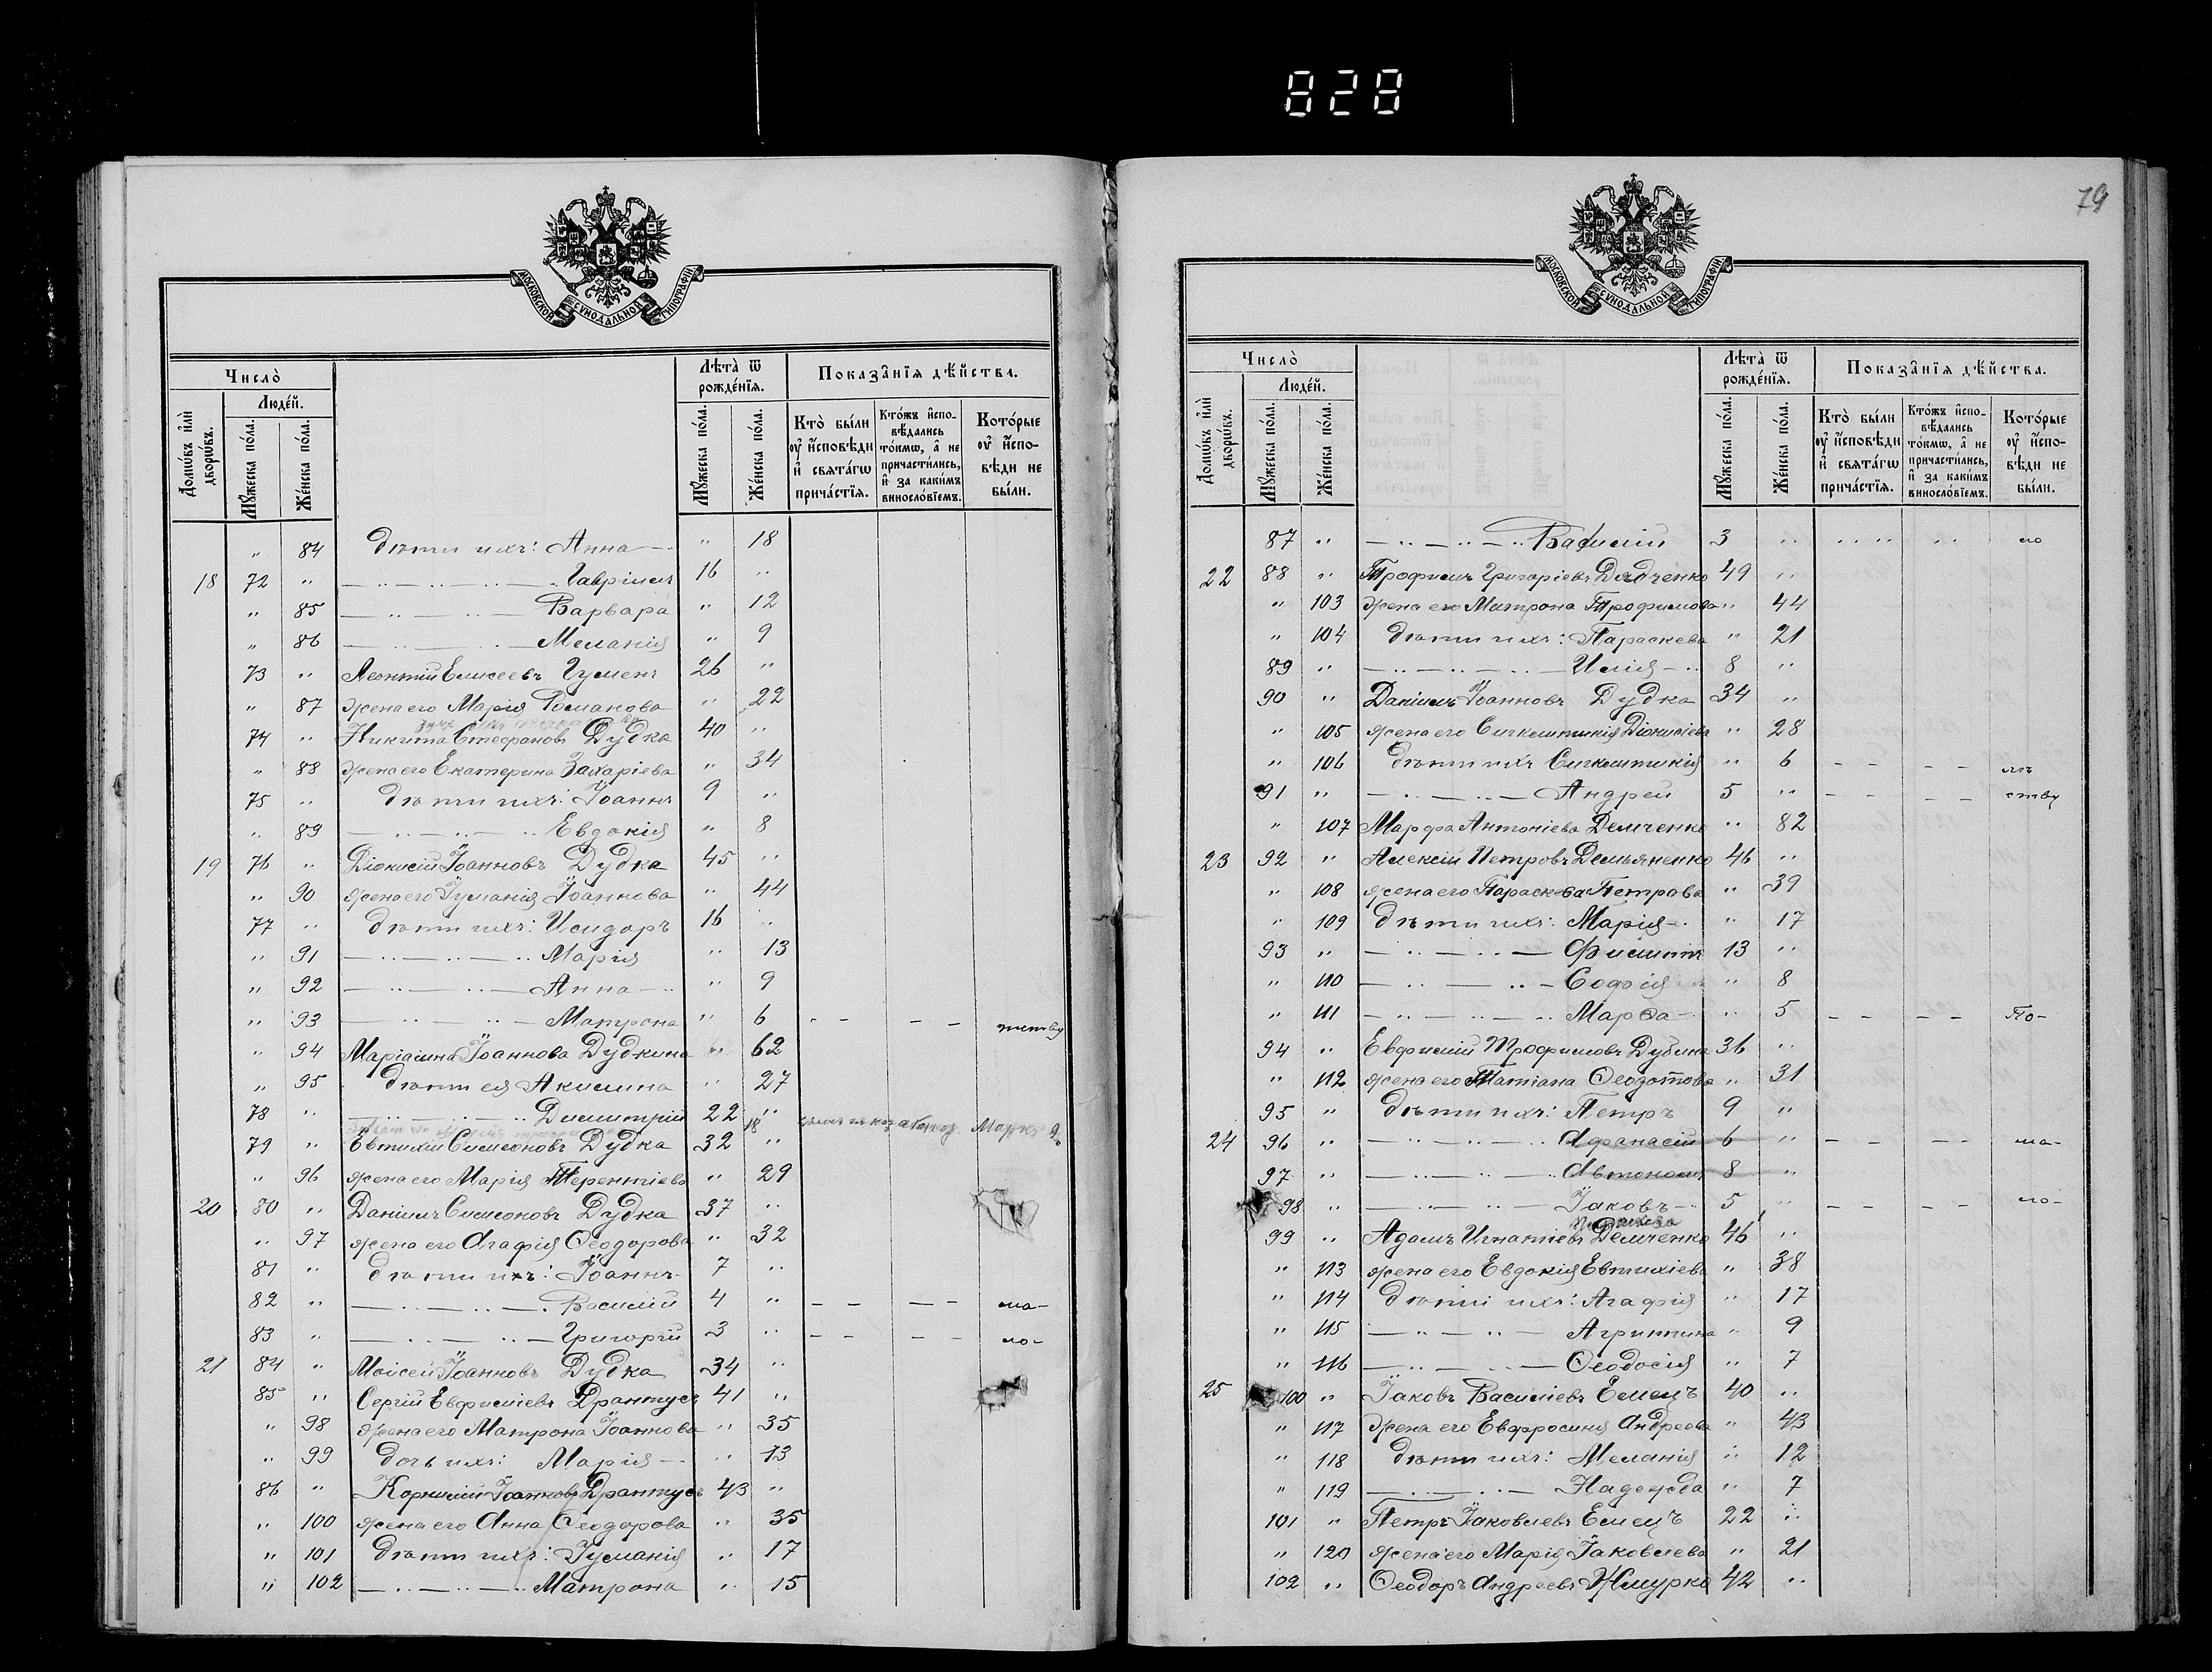 828
79
МОСКОВСКОЙ СУНОДАЛЬНОЙ ТИПОГРАФІИ
Число̀
Люде́й.
Домѡ́въ и҆лѝ дворѡ́въ.
Мꙋ́жеска по́ла.
Же́нска по́ла.
Лѣ́та̀ ѿ рожде́нїѧ.
Мꙋ́жеска по́ла.
Же́нска по́ла.
Показа̂нїѧ дѣ́йства.
Кто̀ бы́ли ᲂу҆ и҆́сповѣди и҆ свѧта́гѡ прича́стїѧ.
Кто́жъ и҆спо-вѣ́дались то́кмѡ, а҆ не причасти́лись, и҆ за каки́мъ виносло́вїемъ.
Кото́рые ᲂу҆ и҆́спо-вѣди не бы́ли.
„ 84 дѣти ихъ: Анна „ 18
18 72 „ Гавріилъ 16 „
„ 85 Варвара „ 12
„ 86 Меланія „ 9
73 „ Леонтій Елисеевъ Гуменъ 26 „
„ 87 жена его Марія Романова „ 22
74 „ Никита Стефановъ Дудка 40 „
„ 88 жена его Екатерина Захаріева „ 34
75 „ дѣти ихъ: Іоаннъ 9 „
„ 89 Евдокія „ 8
19 76 „ Діонисій Іоанновъ Дудка 45 „
„ 90 жена его Іуліанія Іоаннова „ 44
77 „ дѣти ихъ: Исидоръ 16 „
„ 91 Марія „ 13
„ 92 Анна „ 9
„ 93 Матрона „ 6 – – – –
„ 94 Маріамна Іоаннова Дудкина 62
„ 95 дѣти ея Акилина „ 27
78 „ Димитрій 22 „
79 „ Евтихій Симеоновъ Дудка 32 „
„ 96 жена его Марія Терентіева „ 29
20 80 „ Даніилъ Симеоновъ Дудка 37 „
„ 97 жена его Агафія Ѳеодорова „ 32
81 „ дѣти ихъ: Іоаннъ 7 „
82 „ Василій 4 „ – – – – ма-
83 „ Григорій 3 „ – – – – ло-
21 84 „ Моисей Іоанновъ Дудка 34 „
85 „ Сергій Евфиміевъ Драптусъ 41 „
„ 98 жена его Матрона Іоаннова „ 35
„ 99 дочь ихъ: Марія „ 13
86 „ Корнилій Іоанновъ Драптусъ 43 „
„ 100 жена его Анна Ѳеодорова „ 35
„ 101 дѣти ихъ: Іуліанія „ 17
„ 102 Матрона „ 15
Число̀
Люде́й.
Домѡ́въ и҆лѝ дворѡ́въ.
Мꙋ́жеска по́ла.
Же́нска по́ла.
Лѣ́та̀ ѿ рожде́нїѧ.
Мꙋ́жеска по́ла.
Же́нска по́ла.
Показа̂нїѧ дѣ́йства.
Кто̀ бы́ли ᲂу҆ и҆́сповѣди и҆ свѧта́гѡ прича́стїѧ.
Кто́жъ и҆спо-вѣ́дались то́кмѡ, а҆ не причасти́лись, и҆ за каки́мъ виносло́вїемъ.
Кото́рые ᲂу҆ и҆́спо-вѣди не бы́ли.
87 „ Василій 3 „ ло
22 88 „ Трофимъ Григоріевъ Дядченко 49 „
„ 103 жена его Матрона Трофимова „ 44
„ 104 дѣти ихъ: Параскева „ 21
89 „ Илія 8 „
90 „ Даніилъ Іоанновъ Дудка 34 „
„ 105 жена его Сигклитикія Діонисіева „ 28
„ 106 дѣти ихъ Сигклитикія „ 6 – – – – лѣ
91 „ Андрей 5 „ – – – – тству
„ 107 Марфа Антоніева Демченко „ 82
23 92 „ Алексій Петровъ Демьяненко 46 „
„ 108 жена его Параскева Петрова „ 39
„ 109 дѣти ихъ: Марія „ 17
93 „ Филиппъ 13 „
„ 110 Софія „ 8
„ 111 Марѳа „ 5 – – – – По-
94 „ Евфимій Трофимовъ Дубина 36 „
„ 112 жена его Татіана Ѳеодотова „ 31
95 „ дѣти ихъ: Петръ 9 „
24 96 „ Афанасій 6 „ – – – – ма-
97 „ Автономъ 8 „
98 „ Іаковъ 5 „ – – – – ло-
99 „ Адамъ Игнатіевъ Демченко 46 „
„ 113 жена его Евдокія Евтихіева „ 38
„ 114 дѣти ихъ: Агафія „ 17
„ 115 Агриппина „ 9
„ 116 Ѳеодосія „ 7
25 100 „ Іаковъ Василіевъ Емецъ 40 „
„ 117 жена его Евфросинія Андреева „ 43
„ 118 дѣти ихъ: Меланія „ 12
„ 119 Надежда „ 7
101 „ Петръ Іаковлевъ Емецъ 22 „
„ 120 жена его Марія Іаковлева „ 21
102 „ Ѳеодоръ Андреевъ Жмурко 42 „